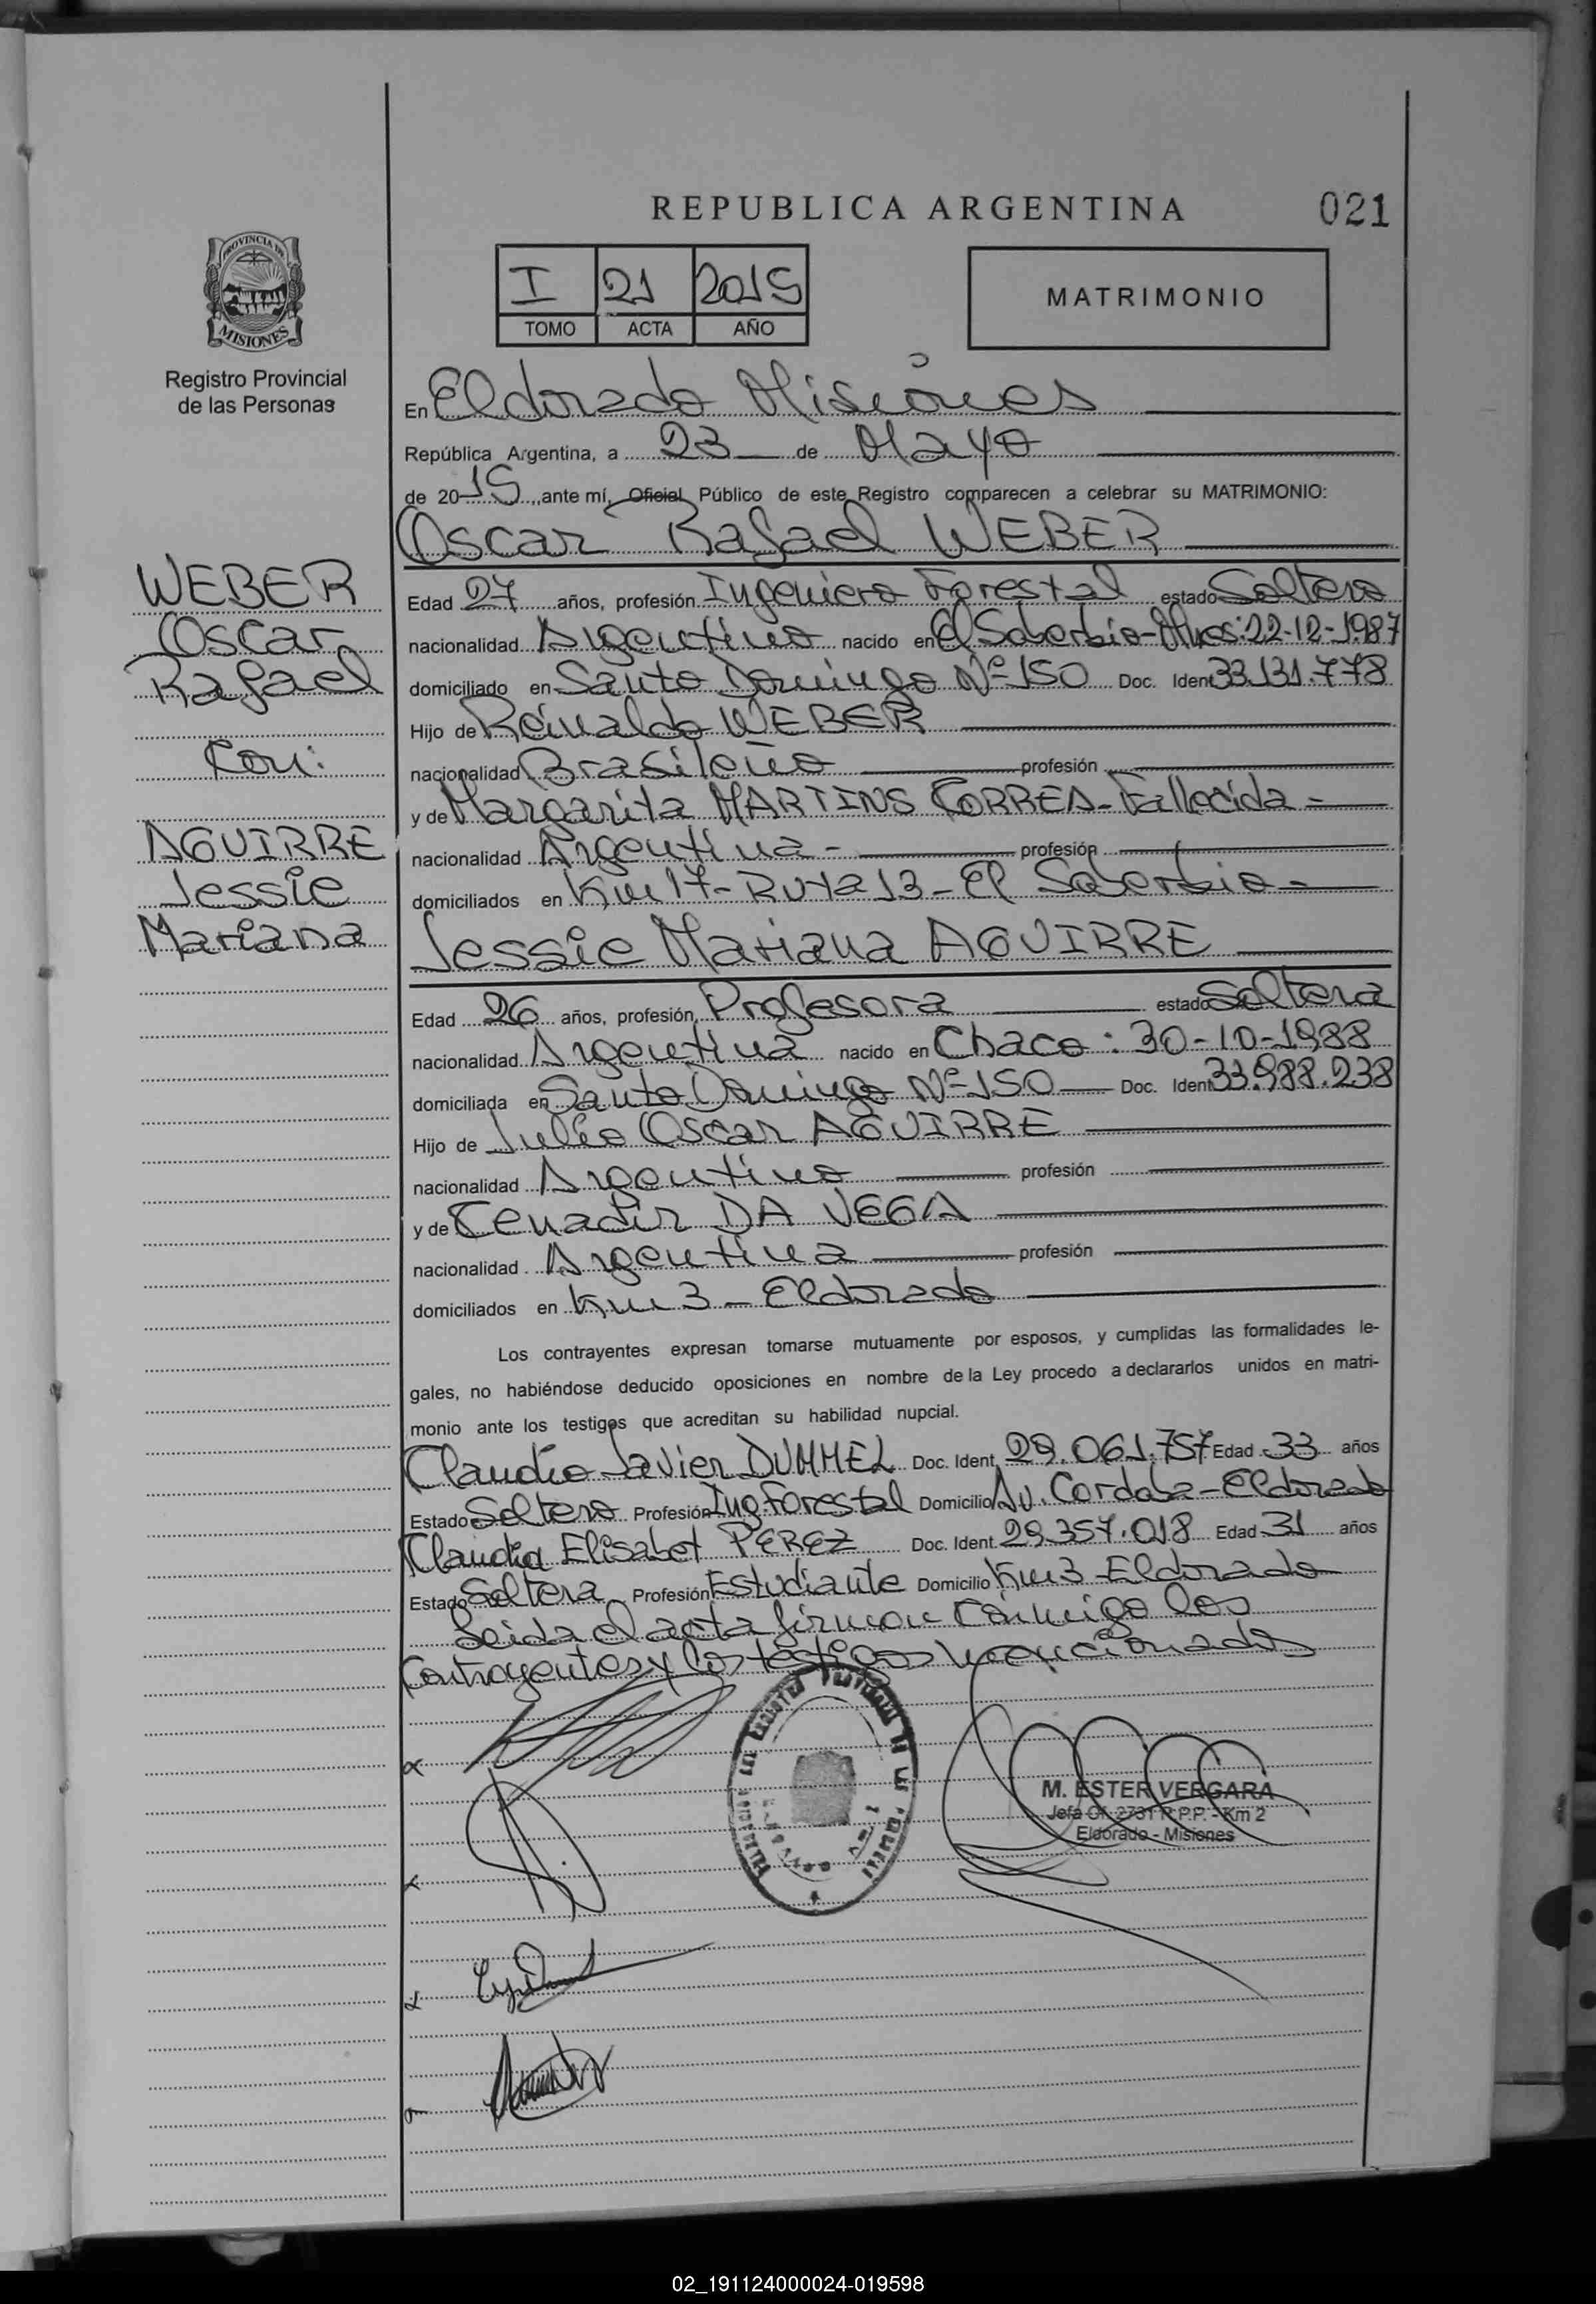 REPUBLICA ARGENTINA
021
PROVINCIA DE
MISIONES
Registro Provincial
de las Personas
I 21 2015
TOMO ACTA AÑO
MATRIMONIO
En Eldorado Misiones
República Argentina, a 23 de Mayo
de 2015, ante mí, Oficial Público de este Registro comparecen a celebrar su MATRIMONIO:
Oscar Rafael WEBER
WEBER
Oscar
Rafael
Con:
AGUIRRE
Jessie
Mariana
Edad 27 años, profesión Ingeniero Forestal estado Soltero
nacionalidad Argentino nacido en El Soberbio-Mnes: 22-12-1987
domiciliado en Santo Domingo Nº 150 Doc. Ident 33.131.778
Hijo de Reinaldo WEBER
nacionalidad Brasileño profesión
y de Margarita MARTINS CORREA - Fallecida -
nacionalidad Argentina - profesión
domiciliados en Km 17 - Ruta 13 - El Soberbio -
Jessie Mariana AGUIRRE
Edad 26 años, profesión Profesora estado Soltera
nacionalidad Argentina nacido en Chaco: 30-10-1988
domiciliada en Santo Domingo Nº 150 Doc. Ident 33.988.238
Hijo de Julio Oscar AGUIRRE
nacionalidad Argentino profesión
y de Cenadir DA VEGA
nacionalidad Argentina profesión
domiciliados en Km 3 - Eldorado
Los contrayentes expresan tomarse mutuamente por esposos, y cumplidas las formalidades le-
gales, no habiéndose deducido oposiciones en nombre de la Ley procedo a declararlos unidos en matri-
monio ante los testigos que acreditan su habilidad nupcial.
Claudio Javier DUMMEL Doc. Ident. 29.061.757 Edad 33 años
Estado Soltero Profesión Ing. Forestal Domicilio Av. Cordoba - Eldorado
Claudia Elisabet PEREZ Doc. Ident. 29.357.018 Edad 31 años
Estado Soltera Profesión Estudiante Domicilio Km 3 Eldorado
Leida el acta firman conmigo los
Contrayentes y los testigos mencionados
M. ESTER VERGARA
Jefa Of. 2731 R.P.P. - Km 2
Eldorado - Misiones
02_191124000024-019598